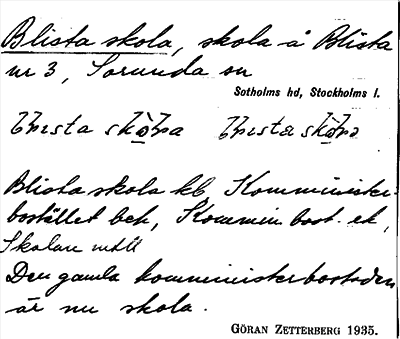 Blista skola, skola å Blista
nr 3, Sorunda sn
Sotholms hd, Stockholms l.
Blista skola kb Komminister-
bostället bek, Kommin. bost. ek,
Skolan
Den gamla komministerbostaden
är nu skola.
GÖRAN ZETTERBERG 1935.